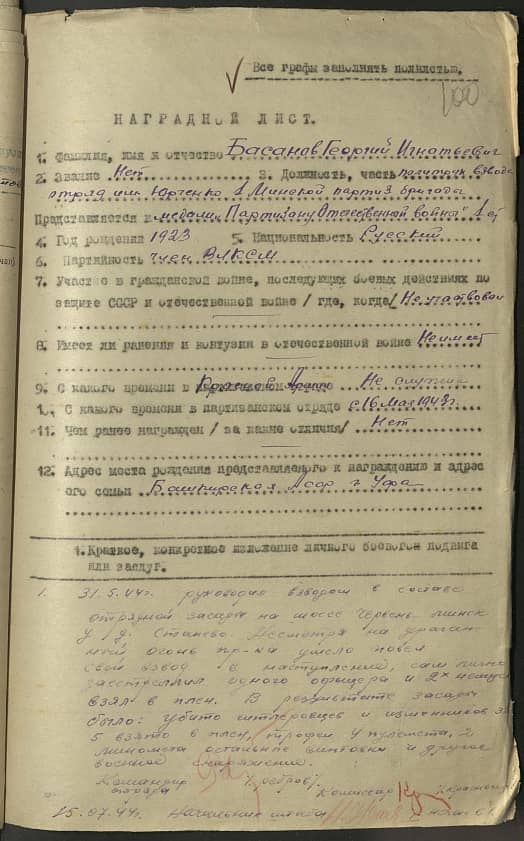 Все графы заполнять полностью.
100
НАГРАДНОЙ ЛИСТ.
1. Фамилия, имя и отчество Басанов Георгий Игнатьевич
2. Звание Нет 3. Должность, часть политрук взвода
отряд им Юрченко 1 Минской партиз бригады
Представляется к медали „Партизану Отечественной войны" 1 ст
4. Год рождения 1923 5. Национальность Русский
6. Партийность член ВЛКСМ
7. Участие в гражданской войне, последующих боевых действиях по
защите СССР и отечественной войне / где, когда/ Не участвовал
8. Имеет ли ранения и контузии в отечественной войне Не имеет
9. С какого времени в Красной Армии Не служил
10. С какого времени в партизанском отряде с 16 Мая 1943г.
11. Чем ранее награжден / за какие отличия/ Нет
12. Адрес места рождения представляемого к награждению и адрес
его семьи Башкирская Асср г Уфа
1. Краткое, конкретное изложение личного боевого подвига
или заслуг.
1. 31.5.44г. руководил взводом в составе
отрядной засады на шоссе Червень-Минск
у д. Станево. Несмотря на ураган-
ный огонь пр-ка умело повел
свой взвод в наступление, сам лично
застрелил одного офицера и 2х немцев
взял в плен. В результате засады
было: убито гитлеровцев и изменников
5 взято в плен, трофеи 4 пулемета, 2
миномета остальные винтовки и другое
военное снаряжение.
Командир /Островс/
отряда Комиссар
15.07.44г. Начальник штаба